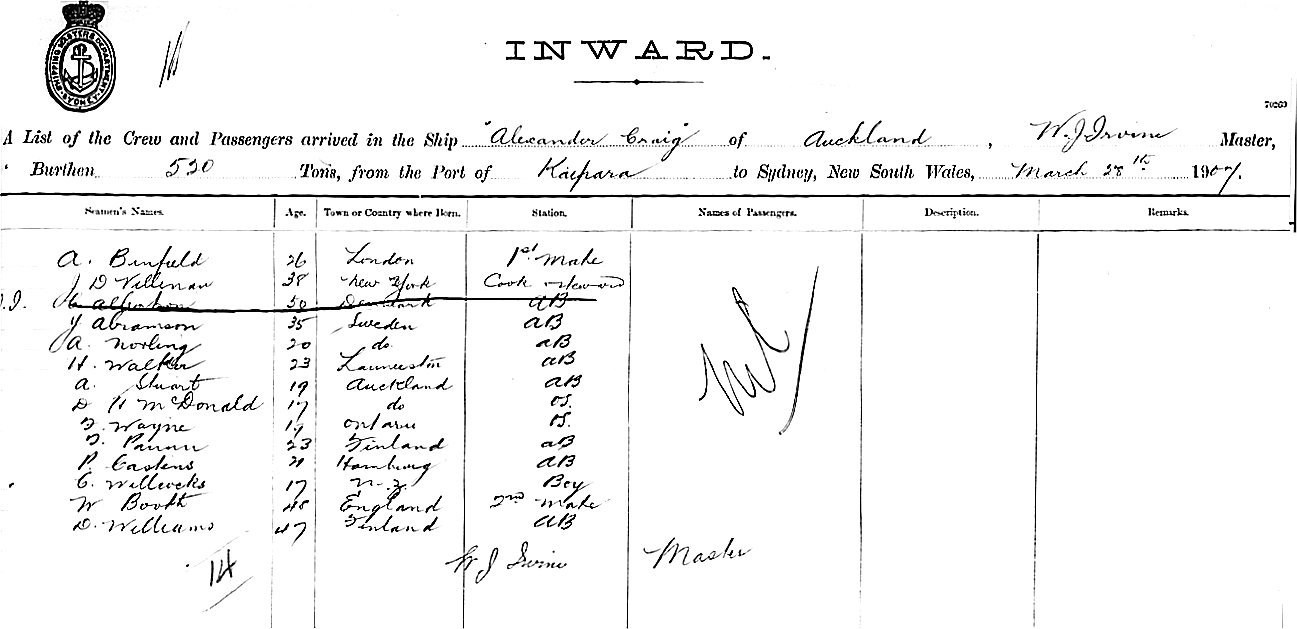 SHIPPING MASTERS DEPARTMENT SYDNEY
INWARD.
70263
A List of the Crew and Passengers arrived in the Ship "Alexander Craig" of Auckland, W. J Irvine Master,
Burthen 520 Tons, from the Port of Kaipara to Sydney, New South Wales, March 28th 1907.
Seamen's Names. Age. Town or Country where Born. Station. Names of Passengers. Description. Remarks.
A. Binfield 26 London 1st Mate
J D Villenau 38 New York Cook Steward
50 Denmark AB
J Abramson 35 Sweden AB
A. Norling 20 do AB
H. Walker 23 Launceston AB
A. Stuart 19 Auckland AB
D H McDonald 17 do OS.
F. Wayne 17 Ontario OS.
F. 23 Finland AB
P. Castens 21 Hamburg AB
C. Willcocks 17 N.Z. Boy
W Booth 48 England 2nd Mate
D. Williams 47 Finland AB
Nil
14
W J Irvine Master